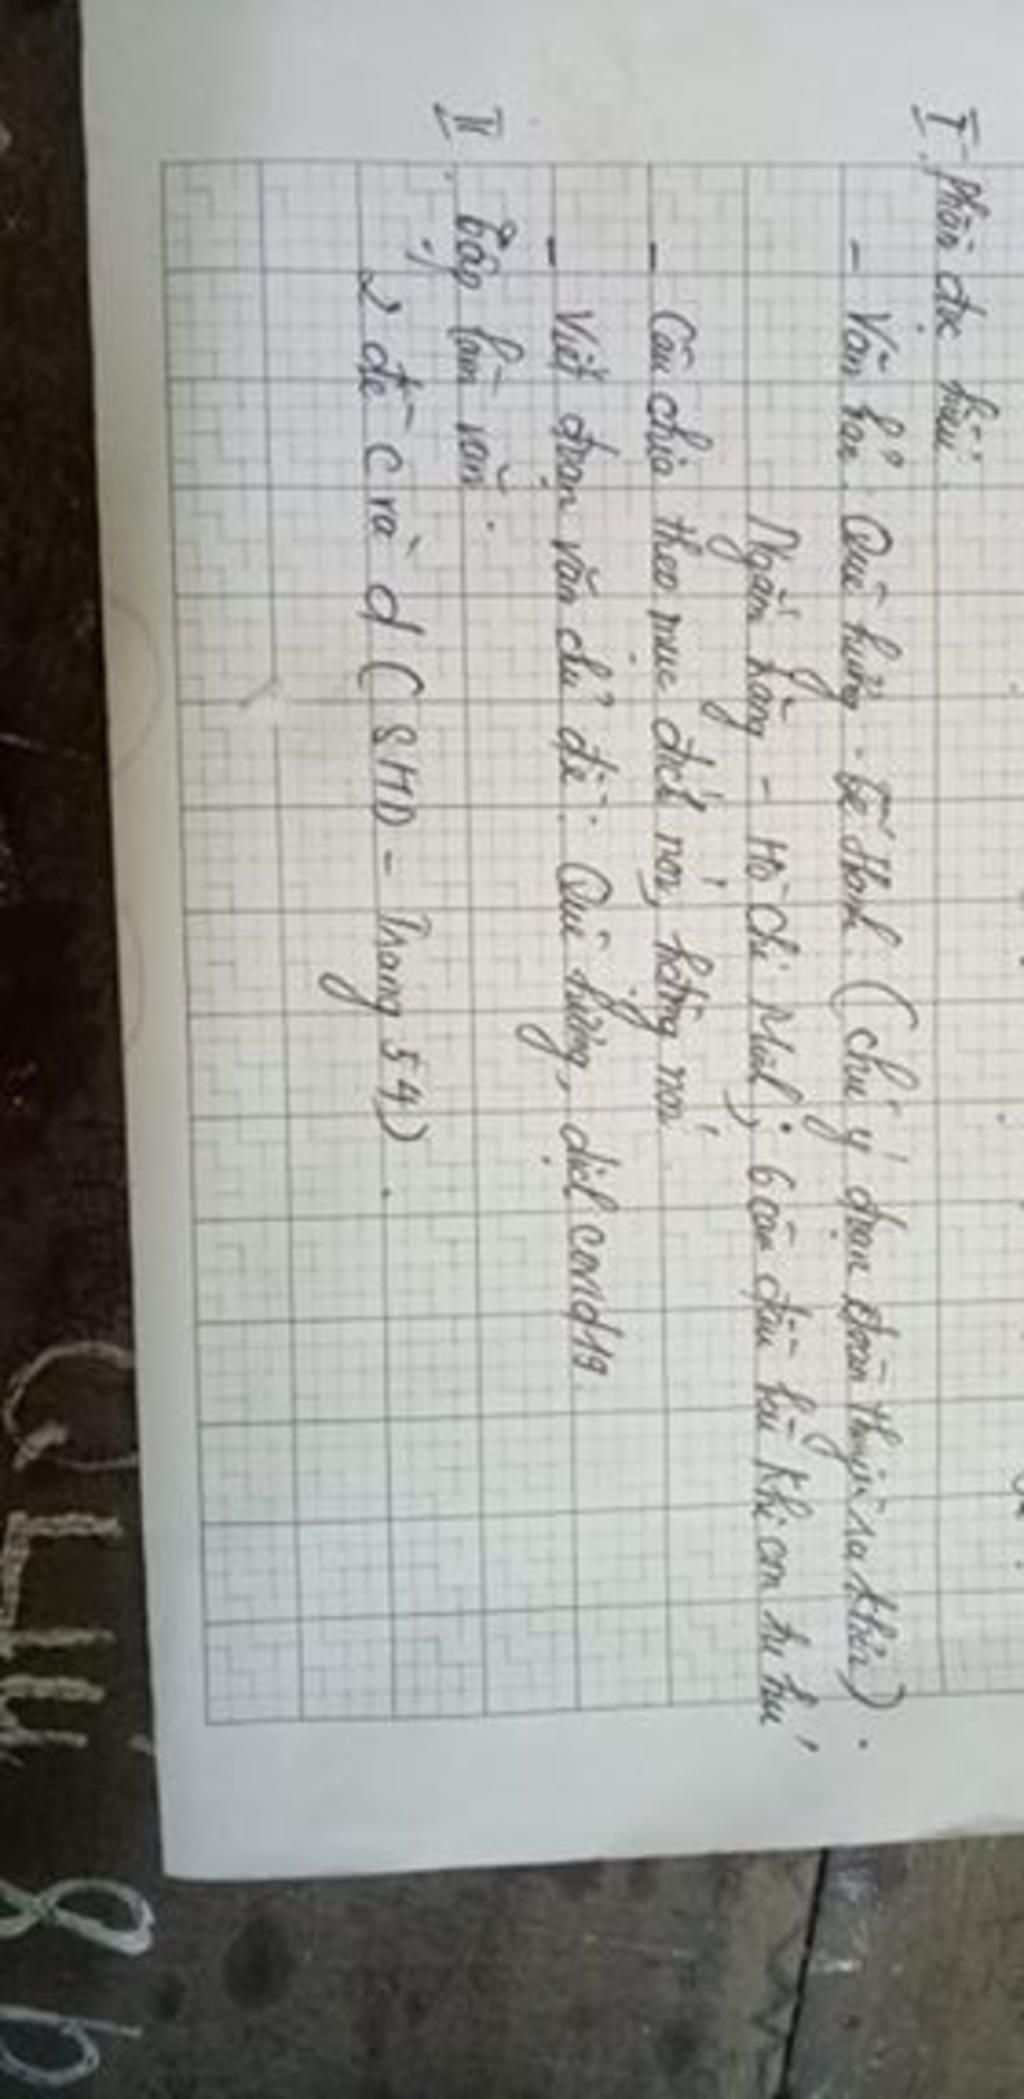 I. Phần đọc hiểu.
- Văn bản: Quê hương - Tế Hanh. (chú ý đoạn đoàn thuyền ra khơi).
Ngắm trăng - Hồ Chí Minh; 6 câu đầu bài Khi con tu hú,
- Câu chia theo mục đích nói, hành động nói
- Viết đoạn văn chủ đề: Quê hương, dịch covid19.
II. Tập làm văn.
2 đề c và d (SHD - Trang 54).
8b